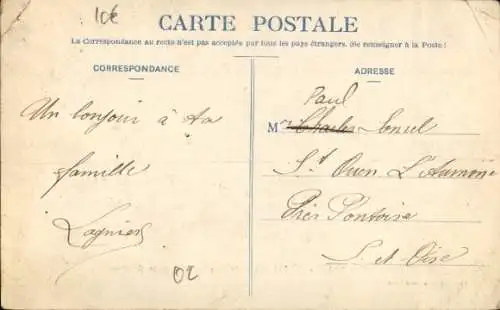 10€
CARTE POSTALE
La Correspondance au recto n'est pas acceptée par tous les pays étrangers. (Se renseigner à la Poste)
CORRESPONDANCE
ADRESSE
Un bonjour à ta
famille
Lagnier
Paul
Mr Charles
St Ouen L'Aumone
Près Pontoise
S. et Oise
02